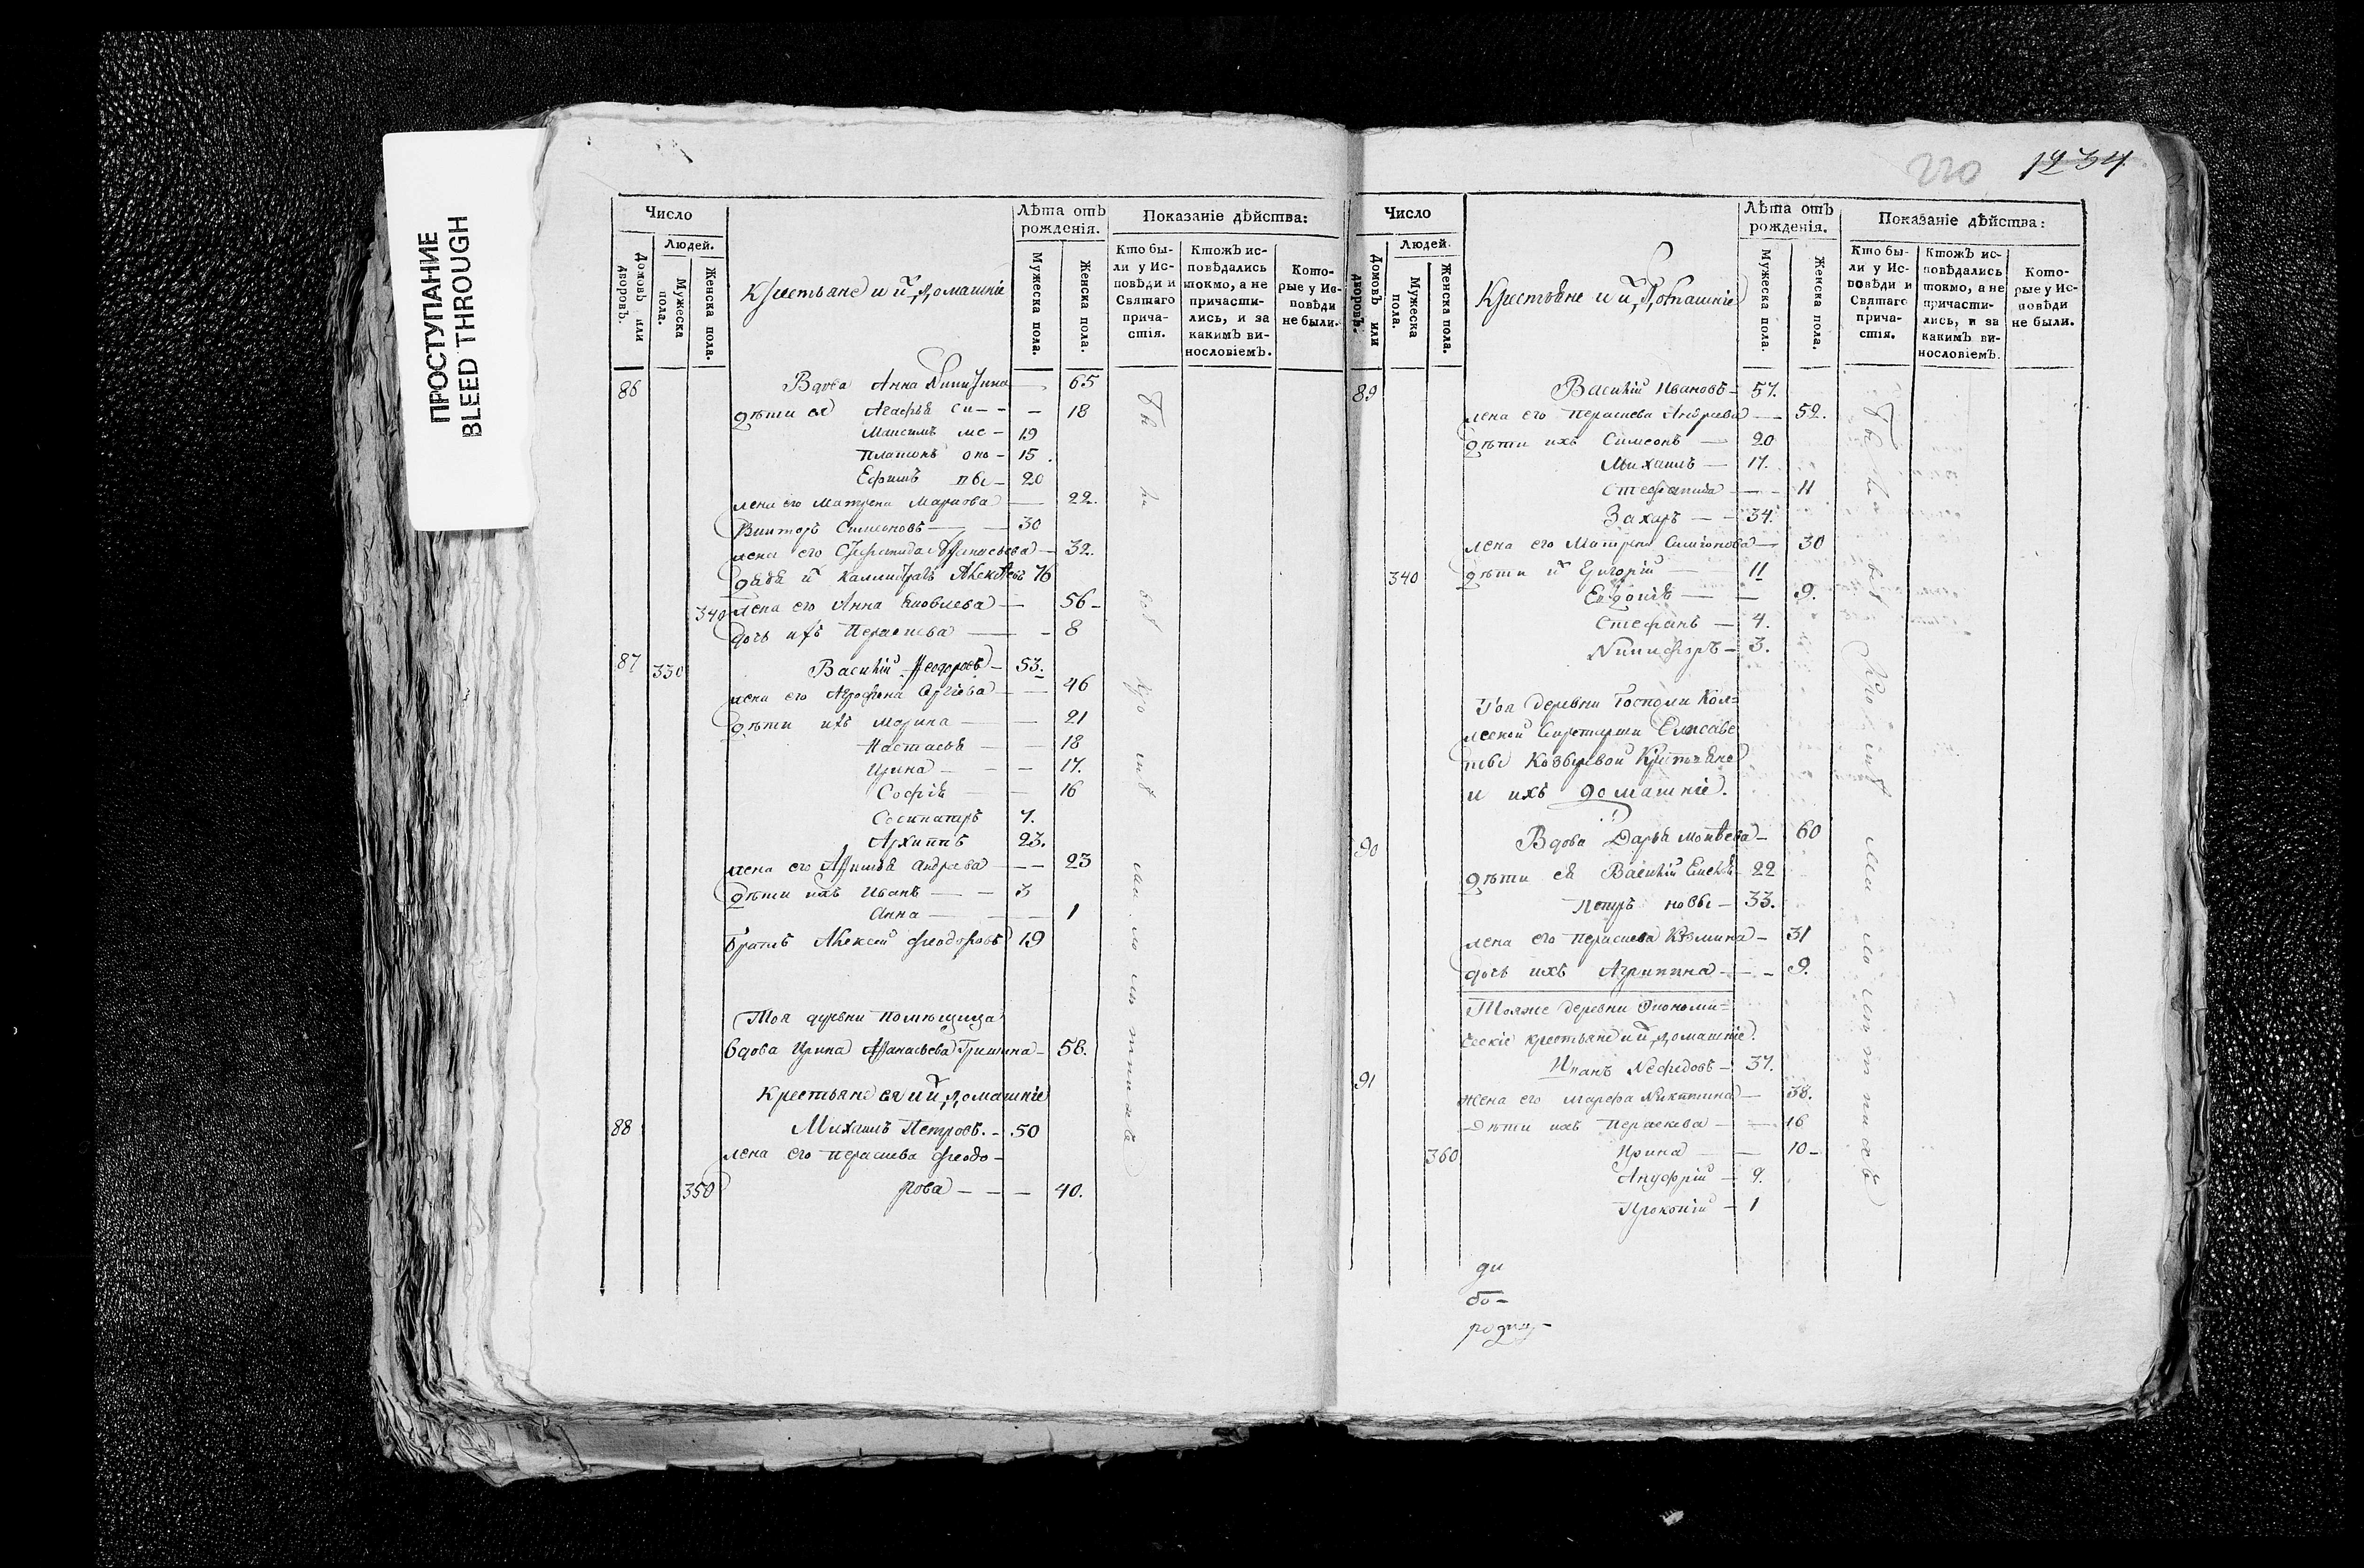 ПРОСТУПАНИЕ
BLEED THROUGH
Число
Людей.
Домовъ или дворовъ.
Мужеска пола.
Женска пола.
Крестьяне и ихъ домашніе
Лѣта отъ рожденія.
Мужеска пола.
Женска пола.
Показаніе дѣйства:
Кто бы-
ли у Ис-
повѣди и
Святаго
прича-
стія.
Ктожъ ис-
повѣдались
токмо, а не
причасти-
лись, и за
какимъ ви-
нословіемъ.
Кото-
рые у Ис-
повѣди
не были.
86 Вдова Анна Никитина — 65
дѣти ея Агафья — 18
Максимъ — 19
Платонъ — 15
Ефимъ — 20
жена его Матрена Маркова — 22.
Викторъ Симеоновъ — 30
жена его Афанасьева — 32.
дядя и Калистратъ Алексѣевъ 76
340 жена его Анна Яковлева — 56
дочь ихъ Параскева — 8
87 330 Василій Феодоровъ — 53.
жена его Агрофена Сергіева — 46
дѣти ихъ Марина — 21
Настасья — 18
Ирина — 17.
Софія — 16
Сосипатръ 7.
Архиппъ 23.
жена его Андреева — 23
дѣти ихъ Иванъ — 3
Анна — 1
братъ Алексей Феодоровъ 19
Тоя деревни помѣщица
вдова Ирина Афанасьева Гришина — 58.
Крестьяне ея и ихъ домашніе
88 Михаилъ Петровъ. — 50
жена его Параскева Феодо-
350 рова — 40.
220 1234
Число
Людей.
Домовъ или дворовъ.
Мужеска пола.
Женска пола.
Крестьяне и ихъ домашніе
Лѣта отъ рожденія.
Мужеска пола.
Женска пола.
Показаніе дѣйства:
Кто бы-
ли у Ис-
повѣди и
Святаго
прича-
стія.
Ктожъ ис-
повѣдались
токмо, а не
причасти-
лись, и за
какимъ ви-
нословіемъ.
Кото-
рые у Ис-
повѣди
не были.
89 Василій Ивановъ — 57.
жена его Параскева Андреева — 52.
дѣти ихъ Симеонъ — 20
Михаилъ — 17.
Стефанида — 11
Захаръ — 34.
жена его Матрена Симеонова — 30
340 дѣти и Григорій 11
Евдокія — 9.
Стефанъ — 4.
Никифоръ — 3.
Тоя деревни Госпожи Кол-
лежской Секретарши Елисаве
ты Козыревой Крестьяне
и ихъ домашніе.
90 Вдова Дарья — 60
дѣти ея Василій 22
Петръ — 33.
жена его Параскева Козмина — 31
дочь ихъ Агрипина — 9.
Тояже деревни Экономи-
ческіе крестьяне и ихъ домашніе.
91 Иванъ Нефедовъ — 37.
жена его Марефа Никитина — 38.
Дѣти ихъ Параскева — 16
360 Ирина — 10
Ануфрій — 9.
Прокопій — 1
ди
бо-